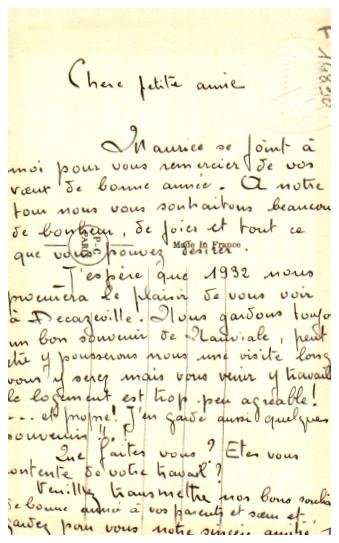 Chere petite amie
Maurice se joint à
moi pour vous remercier de vos
vœux de bonne année. A notre
tour nous vous souhaitons beaucou
de bonheur, de joies et tout ce
que vous pouvez désirer.
C.P.C. PARIS
Made In France
J'espère que 1932 nous
procurera le plaisir de vous voir
à Decazeville. Nous gardons toujo
un bon souvenir de Nauviale, peut
être y pousserons nous une visite lorsq
vous y serez mais vous venir y travaill
le logement est trop peu agréable!
.... et propre! J'en garde aussi quelques
souvenirs!!
Que faites vous? Etes vous
contente de votre travail?
Veuillez transmettre nos bons souhai
de bonne année à vos parents et sœur et
gardez pour vous notre sincère amitié